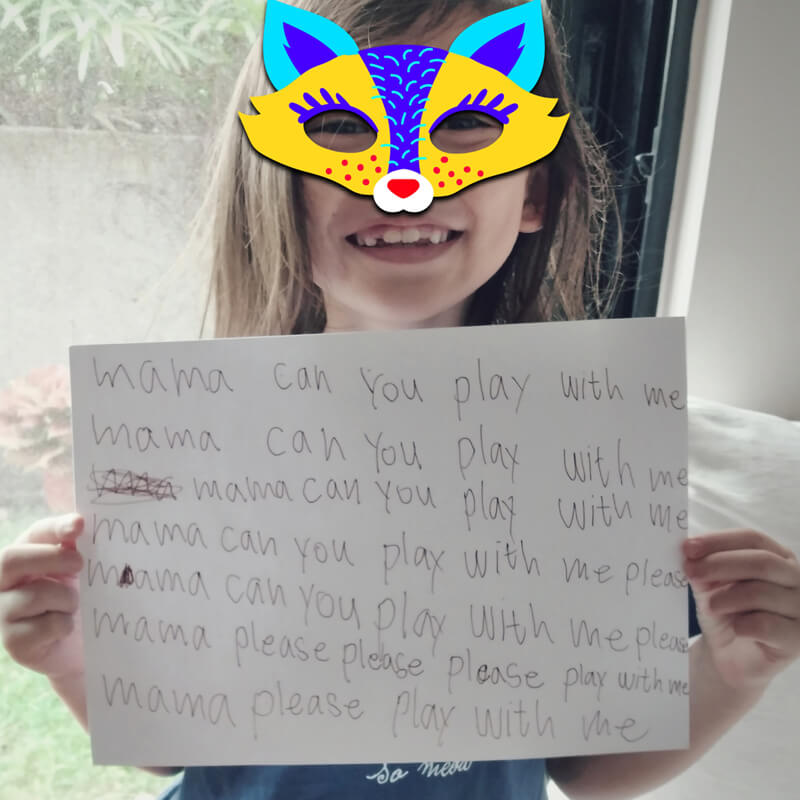 mama can you play with me
mama can you play with me
mama can you play with me
mama can you play with me please
mama can you play with me please
mama please please please play with me
mama please play with me
so meow